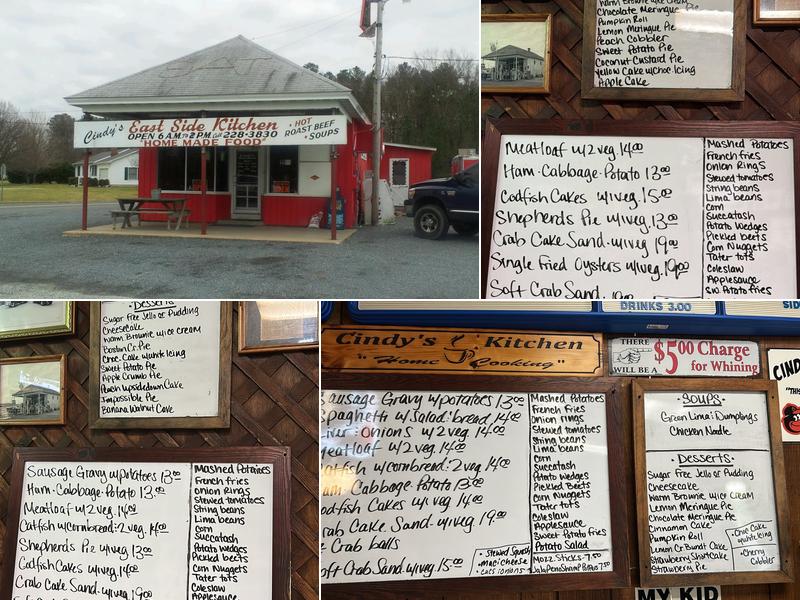 Cindy's East Side Kitchen
OPEN 6 A.M. TO 2 P.M. Call 228-3830
"HOME MADE FOOD"
• HOT
ROAST BEEF
• SOUPS
Warm Brownie w/ice cream
Chocolate Meringue Pie
Pumpkin Roll
Lemon Meringue Pie
Peach Cobbler
Sweet Potato Pie
Coconut Custard Pie
Yellow Cake w/choc. Icing
Apple Cake
Meatloaf w/2 veg. 14.00
Ham-Cabbage-Potato 13.00
Codfish Cakes w/veg. 15.00
Shepherds Pie w/veg. 13.00
Crab Cake Sand. w/veg. 19.00
Single Fried Oysters w/veg. 19.00
Soft Crab Sand.
Mashed Potatoes
French fries
Onion Rings
Stewed tomatoes
String beans
Lima beans
Corn
Succatash
Potato Wedges
Pickled beets
Corn Nuggets
Tater tots
Coleslaw
Applesauce
Sw. Potato fries
Desserts
Sugar Free Jello or Pudding
Cheesecake
Warm Brownie w/ice cream
Boston Cr. Pie
Choc. Cake w/white icing
Sweet Potato Pie
Apple Crumb Pie
Peach Upsidedown Cake
Impossible Pie
Banana Walnut Cake
Sausage Gravy w/potatoes 13.00
Ham-Cabbage-Potato 13.00
Meatloaf w/2 veg 14.00
Catfish w/cornbread-2 veg. 14.00
Shepherds Pie w/veg 13.00
Codfish Cakes w/veg. 14.00
Crab Cake Sand. w/veg. 19.00
Mashed Potatoes
French fries
Onion rings
Stewed tomatoes
String beans
Lima beans
Corn
Succatash
Potato wedges
Pickled beets
Corn Nuggets
Tater tots
Coleslaw
Applesauce
DRINKS 3.00
SID
Cindy's Kitchen
"Home Cooking"
THERE
WILL BE A
$5.00 Charge
for Whining
Sausage Gravy w/potatoes 13.00
Spaghetti w/salad-bread 14.00
Liver-Onions w/2 veg 14.00
Meatloaf w/2 veg 14.00
Catfish w/cornbread-2 veg 14.00
Ham Cabbage-Potato 13.00
Codfish Cakes w/veg. 14.00
Crab Cake Sand. w/veg. 19.00
Crab balls
Soft Crab Sand. w/veg. 15.00
Mashed Potatoes
French Fries
Onion rings
Stewed tomatoes
String beans
Lima beans
Corn
Succatash
Potato wedges
Pickled Beets
Corn Nuggets
Tater tots
Coleslaw
Applesauce
Sweet Potato fries
Potato Salad
Mozz. Sticks-7.50
• Stewed Squash
mac:cheese
SOUPS:
Green Lima: Dumplings
Chicken Noodle
Desserts:
Sugar Free Jello or Pudding
Cheesecake
Warm Brownie w/ice cream
Lemon Meringue Pie
Chocolate Meringue Pie
Cinnamon Cake
Pumpkin Roll
Lemon Cr. Bundt Cake
Strawberry Shortcake
Strawberry Pie
• Choc Cake
w/white icing
• Cherry
Cobbler
CIND
MY KID